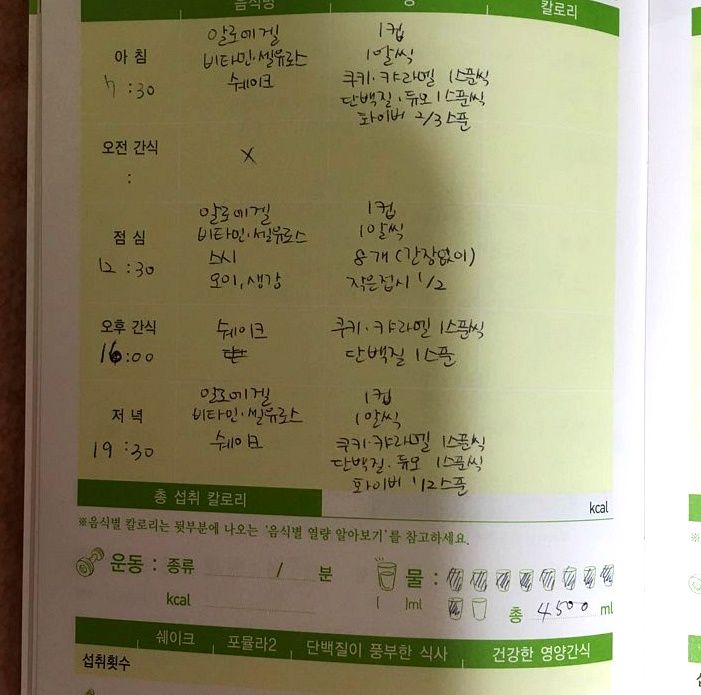 음식명 양 칼로리
아침
7:30
알로에겔 1컵
비타민·셀유로스 1알씩
쉐이크 쿠키·캬라멜 1스푼씩
단백질·듀오 1스푼씩
화이버 2/3스푼
오전 간식
:
X
점심
12:30
알로에겔 1컵
비타민·셀유로스 1알씩
스시 8개 (간장없이)
오이, 생강 작은접시 1/2
오후 간식
16:00
쉐이크 쿠키·캬라멜 1스푼씩
단백질 1스푼
저녁
19:30
알로에겔 1컵
비타민·셀유로스 1알씩
쉐이크 쿠키·캬라멜 1스푼씩
단백질·듀오 1스푼씩
화이버 1/2스푼
총 섭취 칼로리 kcal
※음식별 칼로리는 뒷부분에 나오는 '음식별 열량 알아보기'를 참고하세요.
운동 : 종류 / 분 물 :
kcal [ ]ml 총 4500 ml
쉐이크 포뮬라2 단백질이 풍부한 식사 건강한 영양간식
섭취횟수